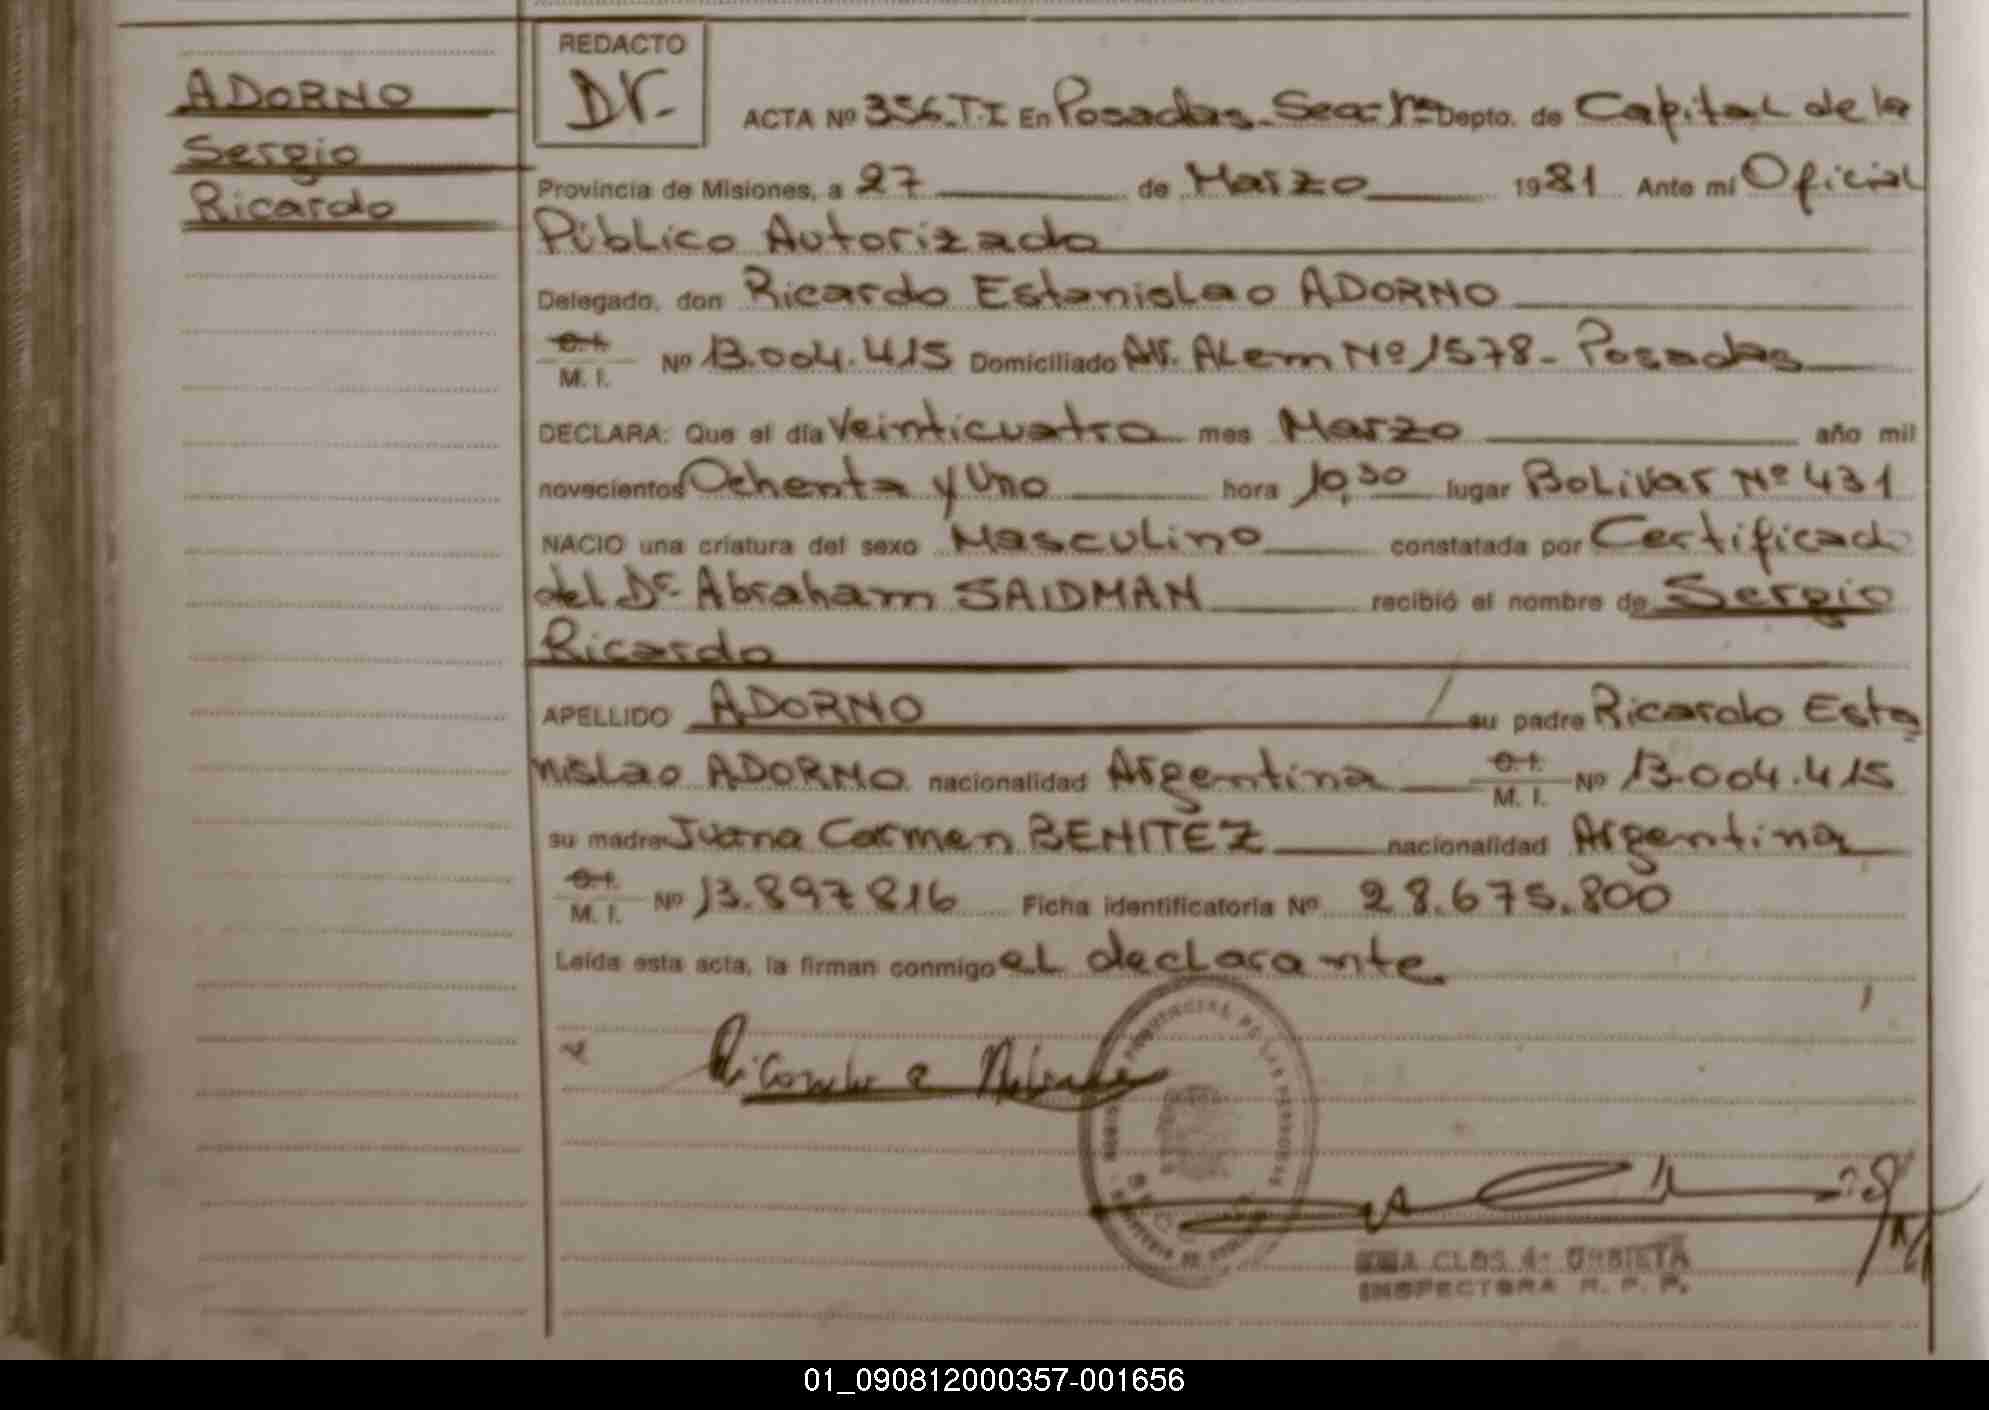 ADORNO
Sergio
Ricardo
REDACTO
Dr.
ACTA Nº 356-T.I En Posadas-Secc-1ra Depto. de Capital de la
Provincia de Misiones, a 27 de Marzo 1981 Ante mí Oficial
Público Autorizado
Delegado, don Ricardo Estanislao ADORNO
C.I.
M. I. Nº 13.004.415 Domiciliado Av. Alem Nº 1578- Posadas
DECLARA: Que el día Veinticuatro mes Marzo año mil
novecientos Ochenta y Uno hora 10,30 lugar Bolivar Nº 431
NACIO una criatura del sexo Masculino constatada por Certificado
del Dr. Abraham SAIDMAN recibió el nombre de Sergio
Ricardo
APELLIDO ADORNO su padre Ricardo Esta
nislao ADORNO nacionalidad Argentina C.I.
M. I. Nº 13.004.415
su madre Juana Carmen BENITEZ nacionalidad Argentina
C.I.
M. I. Nº 13.897816 Ficha identificatoria Nº 28.675.800
Leída esta acta, la firman conmigo el declarante.
PROVINCIAL DE LAS PERSONAS
INSPECTORA R. P. P.
01_090812000357-001656